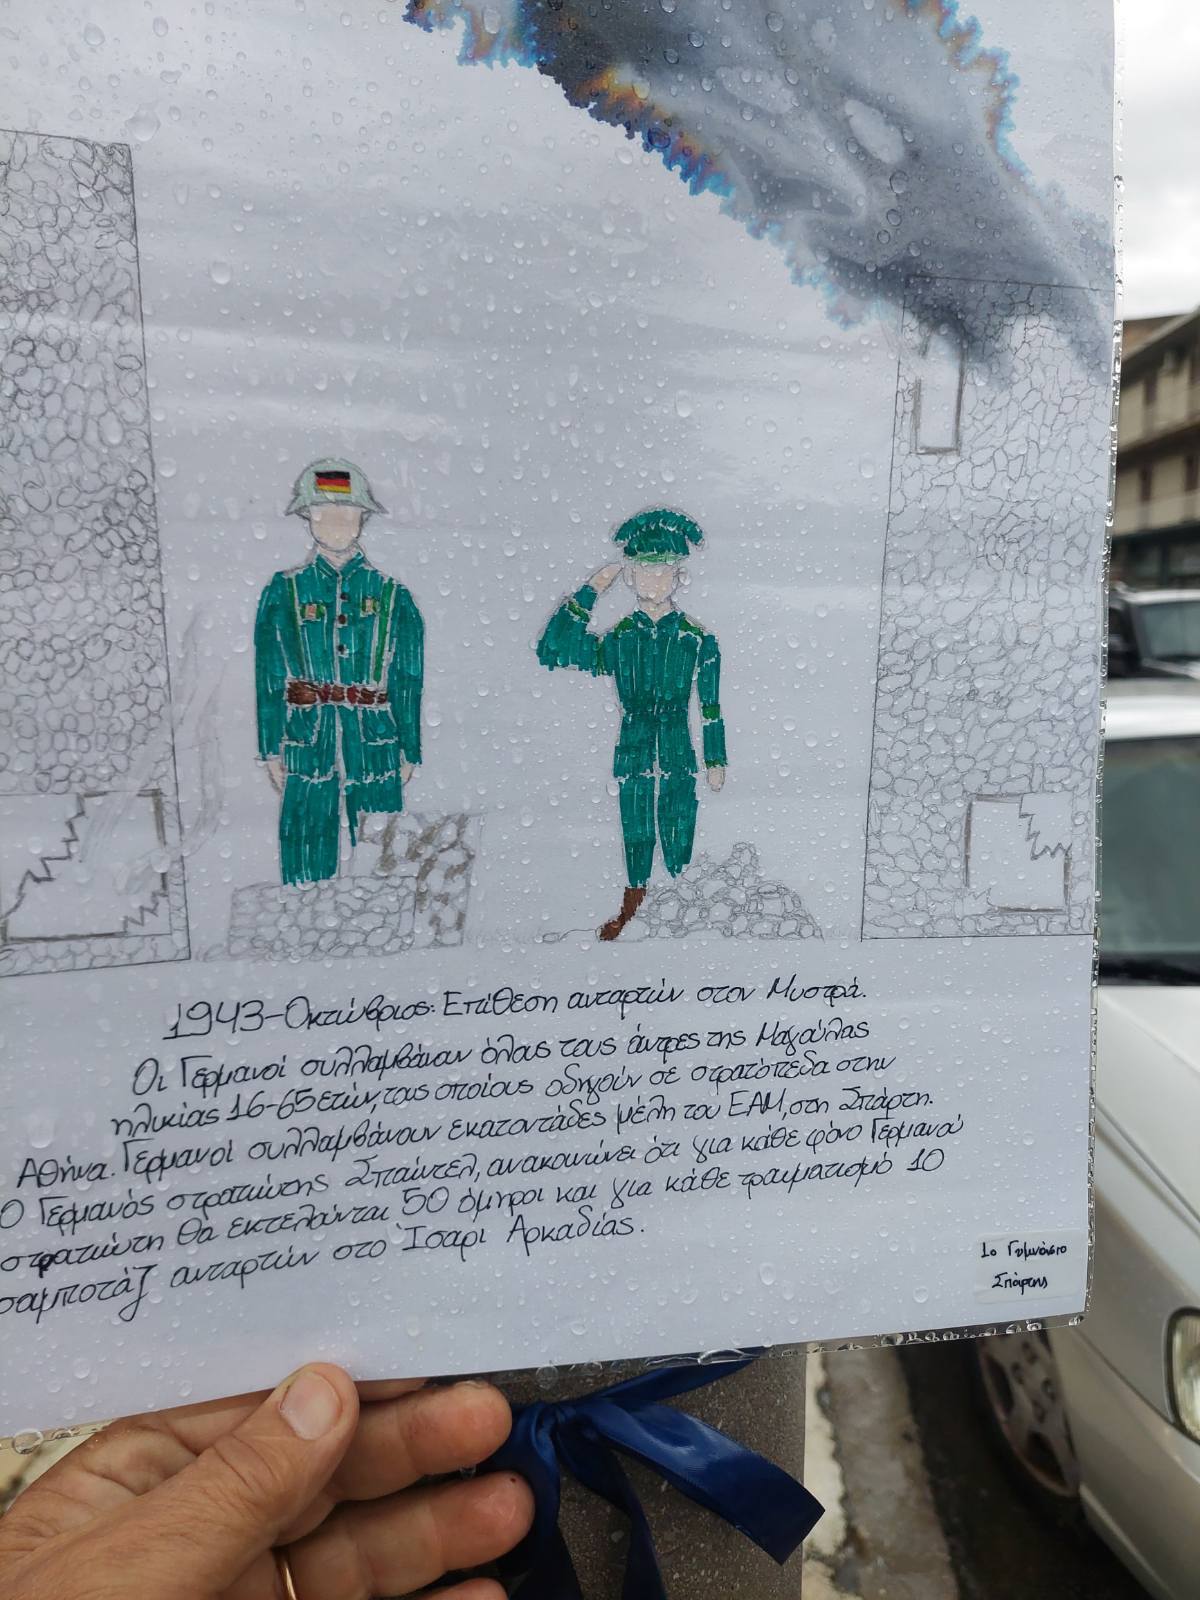 1943-Οκτώβριος: Επίθεση ανταρτών στον Μυστρά.
Οι Γερμανοί συλλαμβάνουν όλους τους άντρες της Μαγούλας
ηλικίας 16-65 ετών, τους οποίους οδηγούν σε στρατόπεδα στην
Αθήνα. Γερμανοί συλλαμβάνουν εκατοντάδες μέλη του ΕΑΜ, στη Σπάρτη.
Ο Γερμανός στρατιώτης Σπάιντελ, ανακοινώνει ότι για κάθε φόνο Γερμανού
στρατιώτη θα εκτελούνται 50 όμηροι και για κάθε τραυματισμό 10
σαμποτάζ ανταρτών στο Ίσαρι Αρκαδίας.
1ο Γυμνάσιο
Σπάρτης